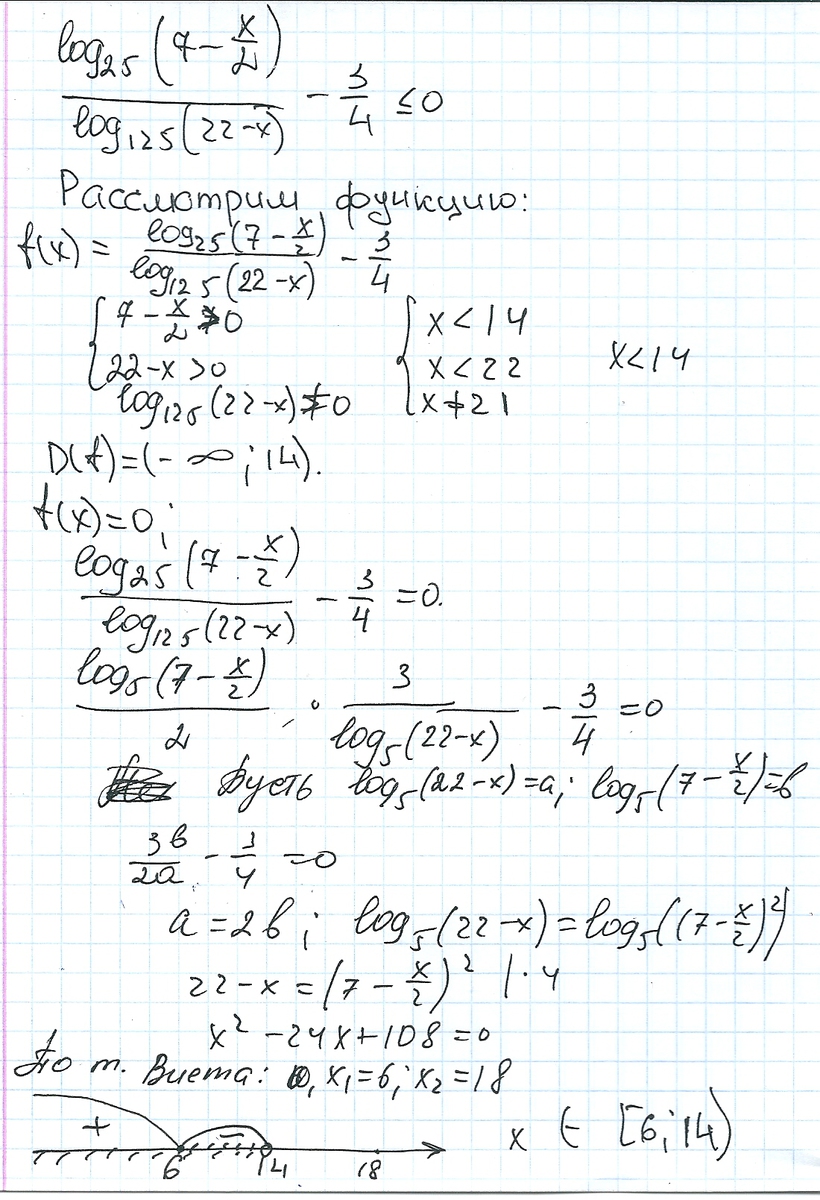 log₂₅(7 − x/2) / log₁₂₅(22−x) − 3/4 ≤ 0
Рассмотрим функцию:
f(x) = log₂₅(7 − x/2) / log₁₂₅(22−x) − 3/4
{ 7 − x/2 > 0 { x < 14
22−x > 0 x < 22 x < 14
log₁₂₅(22−x) ≠ 0 x ≠ 21
D(f) = (−∞; 14).
f(x) = 0;
log₂₅(7 − x/2) / log₁₂₅(22−x) − 3/4 = 0.
log₅(7 − x/2) / 2 · 3 / log₅(22−x) − 3/4 = 0
Пусть log₅(22−x) = a; log₅(7 − x/2) = b
3b/2a − 3/4 = 0
a = 2b; log₅(22−x) = log₅((7 − x/2)²)
22−x = (7 − x/2)² | · 4
x² − 24x + 108 = 0
По т. Виета: x₁ = 6; x₂ = 18
+ − x ∈ [6; 14)
6 14 18